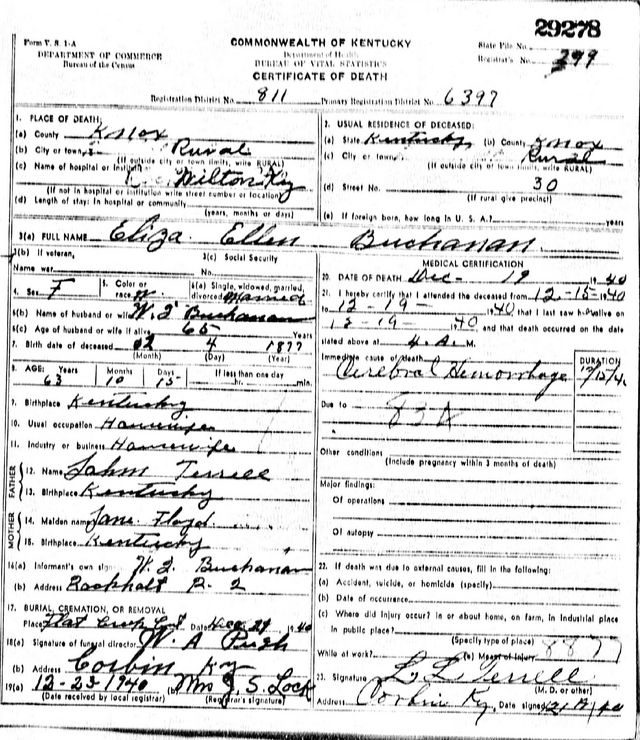 29278
Form V. S. 1-A
DEPARTMENT OF COMMERCE
Bureau of the Census
COMMONWEALTH OF KENTUCKY
Department of Health
BUREAU OF VITAL STATISTICS
CERTIFICATE OF DEATH
State File No.
Registrar's No. 399
Registration District No. 811 Primary Registration District No. 6397
1. PLACE OF DEATH:
(a) County Knox
(b) City or town Rural
(If outside city or town limits, write RURAL)
(c) Name of hospital or institution
Wilton Ky
(If not in hospital or institution write street number or location)
(d) Length of stay: In hospital or community
(years, months or days)
2. USUAL RESIDENCE OF DECEASED:
(a) State Kentucky (b) County Knox
(c) City or town Rural
(If outside city or town limits, write RURAL)
(d) Street No. 30
(If rural give precinct)
(e) If foreign born, how long in U. S. A.? years
3(a) FULL NAME Eliza Ellen Buchanan
3(b) If veteran,
Name war
3(c) Social Security
No.
4. Sex F
5. Color or
race W.
6(a) Single, widowed, married,
divorced Married
6(b) Name of husband or wife Buchanan
6(c) Age of husband or wife if alive 65 Years
7. Birth date of deceased 02 4 1877
(Month) (Day) (Year)
8. AGE: Years Months Days If less than one day
63 10 15 hr. min.
9. Birthplace Kentucky
10. Usual occupation Housewife
11. Industry or business Housewife
FATHER
12. Name Terrell
13. Birthplace Kentucky
MOTHER
14. Maiden name Jane Floyd
15. Birthplace Kentucky
16(a) Informant's own sign. Buchanan
(b) Address R. 2
17. BURIAL, CREMATION, OR REMOVAL
Place Flat Creek Date Dec 1940
18(a) Signature of funeral director W. A Pugh
(b) Address Corbin Ky
19(a) 12-23-1940 (b) Mrs J. S. Lock
(Date received by local registrar) (Registrar's signature)
MEDICAL CERTIFICATION
20. DATE OF DEATH Dec- 19 1940
21. I hereby certify that I attended the deceased from 12-15-1940
to 12-19- 1940 that I last saw alive on
19- 1940 and that death occurred on the date
stated above at 4. A. M.
Immediate cause of death
Cerebral Hemorrhage
DURATION
12/15/40
Due to 83A
Other conditions
(Include pregnancy within 3 months of death)
Major findings:
Of operations
Of autopsy
22. If death was due to external causes, fill in the following:
(a) Accident, suicide, or homicide (specify)
(b) Date of occurrence
(c) Where did injury occur? in or about home, on farm, in industrial place
in public place?
(Specify type of place)
While at work? (e) Means of injury 8877
23. Signature L L Terrell
(M. D. or other)
Address Corbin Ky Date signed